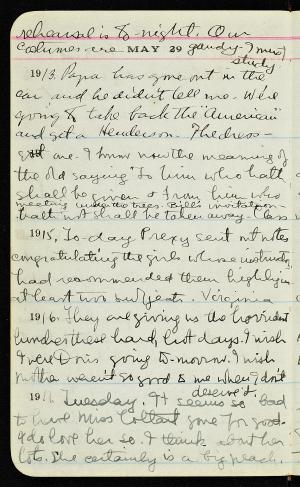 rehearsal is to-night. Our
costumes are MAY 29 gaudy - I must
study
1913. Papa has gone out in the
car and he didn't tell me. We're
going to take back the "American"
and get a Henderson. The dress -
one. I know now the meaning of
the old saying "To him who hath
shall be given & from him who
meeting under the trees. Bill's installation -
hath not shall be taken away - Class
1915. To-day Prexy sent out notes
congratulating the girls whose instructors
had recommended them highly in
at least two subjects. Virginia
1916. They are giving us the horridest
lunches these hard, last days. I wish
I were Doris going to-morrow. I wish
mother weren't so good to me when I don't
deserve it
191 Tuesday. It seems so bad
to have Miss Coltant gone for good.
I do love her so. I think about her
lots. She certainly is a big peach.